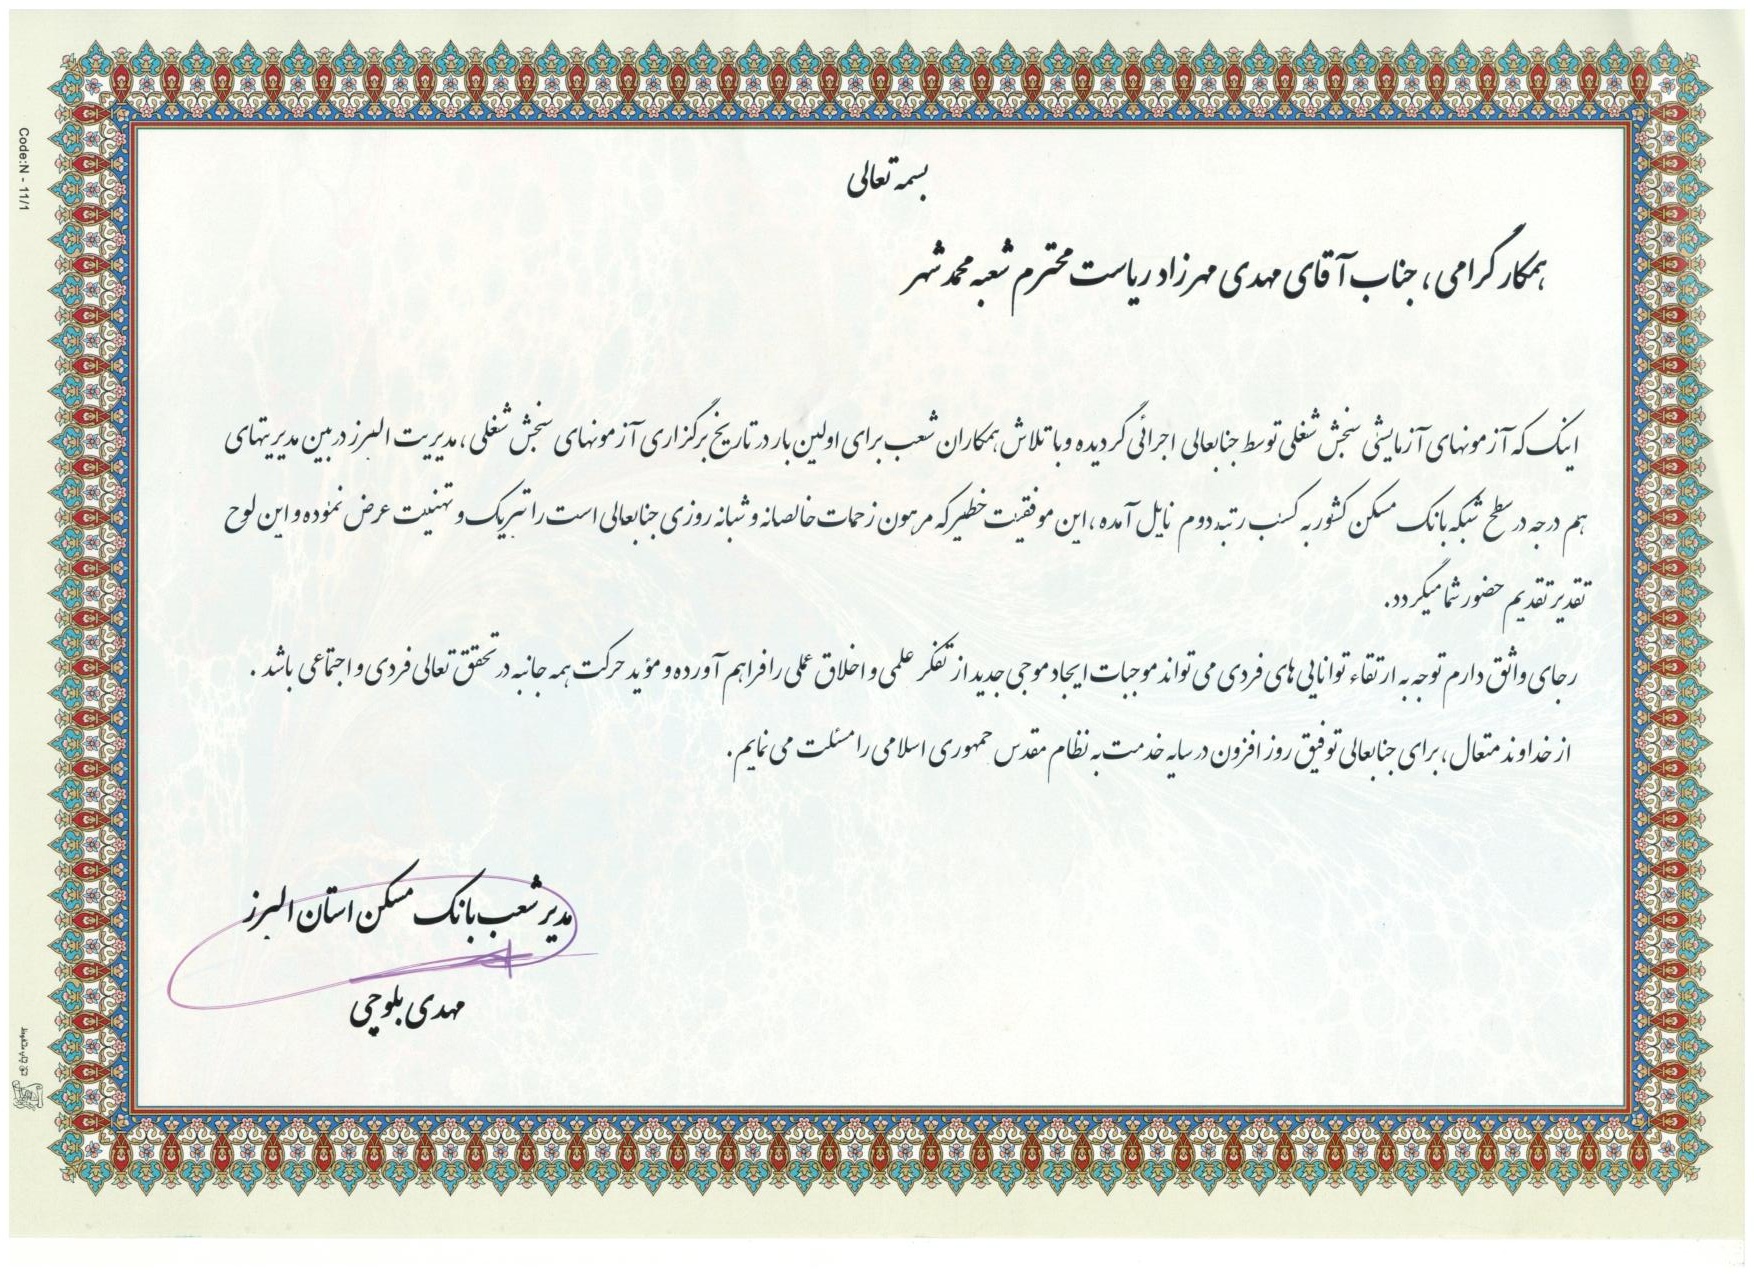 بسمه تعالی
همکار گرامی ، جناب آقای مهدی مهرزاد ریاست محترم شعبه محمد شهر
اینک که آزمونهای آزمایشی سنجش شغلی توسط جنابعالی اجرائی گردیده و با تلاش همکاران شعب برای اولین بار در تاریخ برگزاری آزمونهای سنجش شغلی ، مدیریت البرز در بین مدیریتهای
هم درجه در سطح شبکه بانک مسکن کشور به کسب رتبه دوم نایل آمده ، این موفقیت خطیر که مرهون زحمات خالصانه و شبانه روزی جنابعالی است را تبریک و تهنیت عرض نموده و این لوح
تقدیر تقدیم حضور شما میگردد.
رجای واثق دارم توجه به ارتقاء توانایی های فردی می تواند موجبات ایجاد موجی جدید از تفکر علمی و اخلاق عملی را فراهم آورده و مؤید حرکت همه جانبه در تحقق تعالی فردی و اجتماعی باشد .
از خداوند متعال ، برای جنابعالی توفیق روز افزون در سایه خدمت به نظام مقدس جمهوری اسلامی را مسئلت می نمایم .
مدیر شعب بانک مسکن استان البرز
مهدی بلوچی
Code:N - 11/1